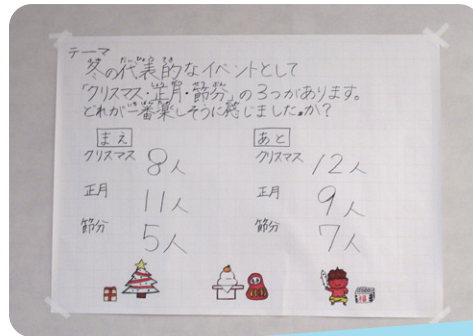 テーマ
冬の代表的なイベントとして
「クリスマス・正月・節分」の3つがあります。
どれが一番楽しそうに感じました。か?
まえ
クリスマス 8人
正月 11人
節分 5人
あと
クリスマス 12人
正月 9人
節分 7人
福